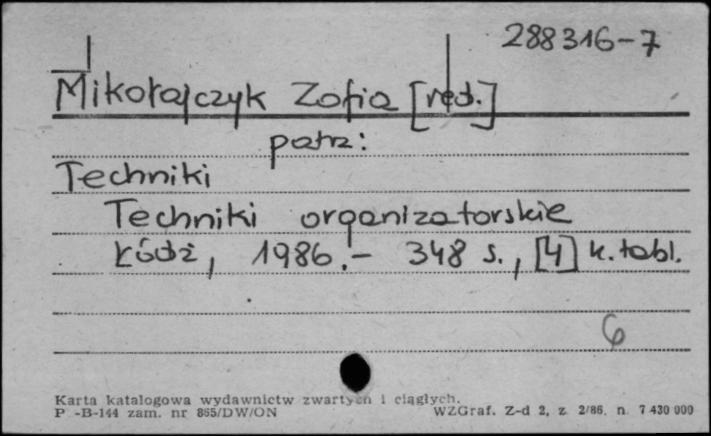 288316-7
Mikołajczyk Zofia [red.]
patrz:
Techniki
Techniki organizatorskie
Łódź, 1986.- 348 s., [4] k. tabl.
6
Karta katalogowa wydawnictw zwartych i ciągłych.
P -B-144 zam. nr 865/DW/ON WZGraf. Z-d 2, z. 2/86. n. 7 430 000